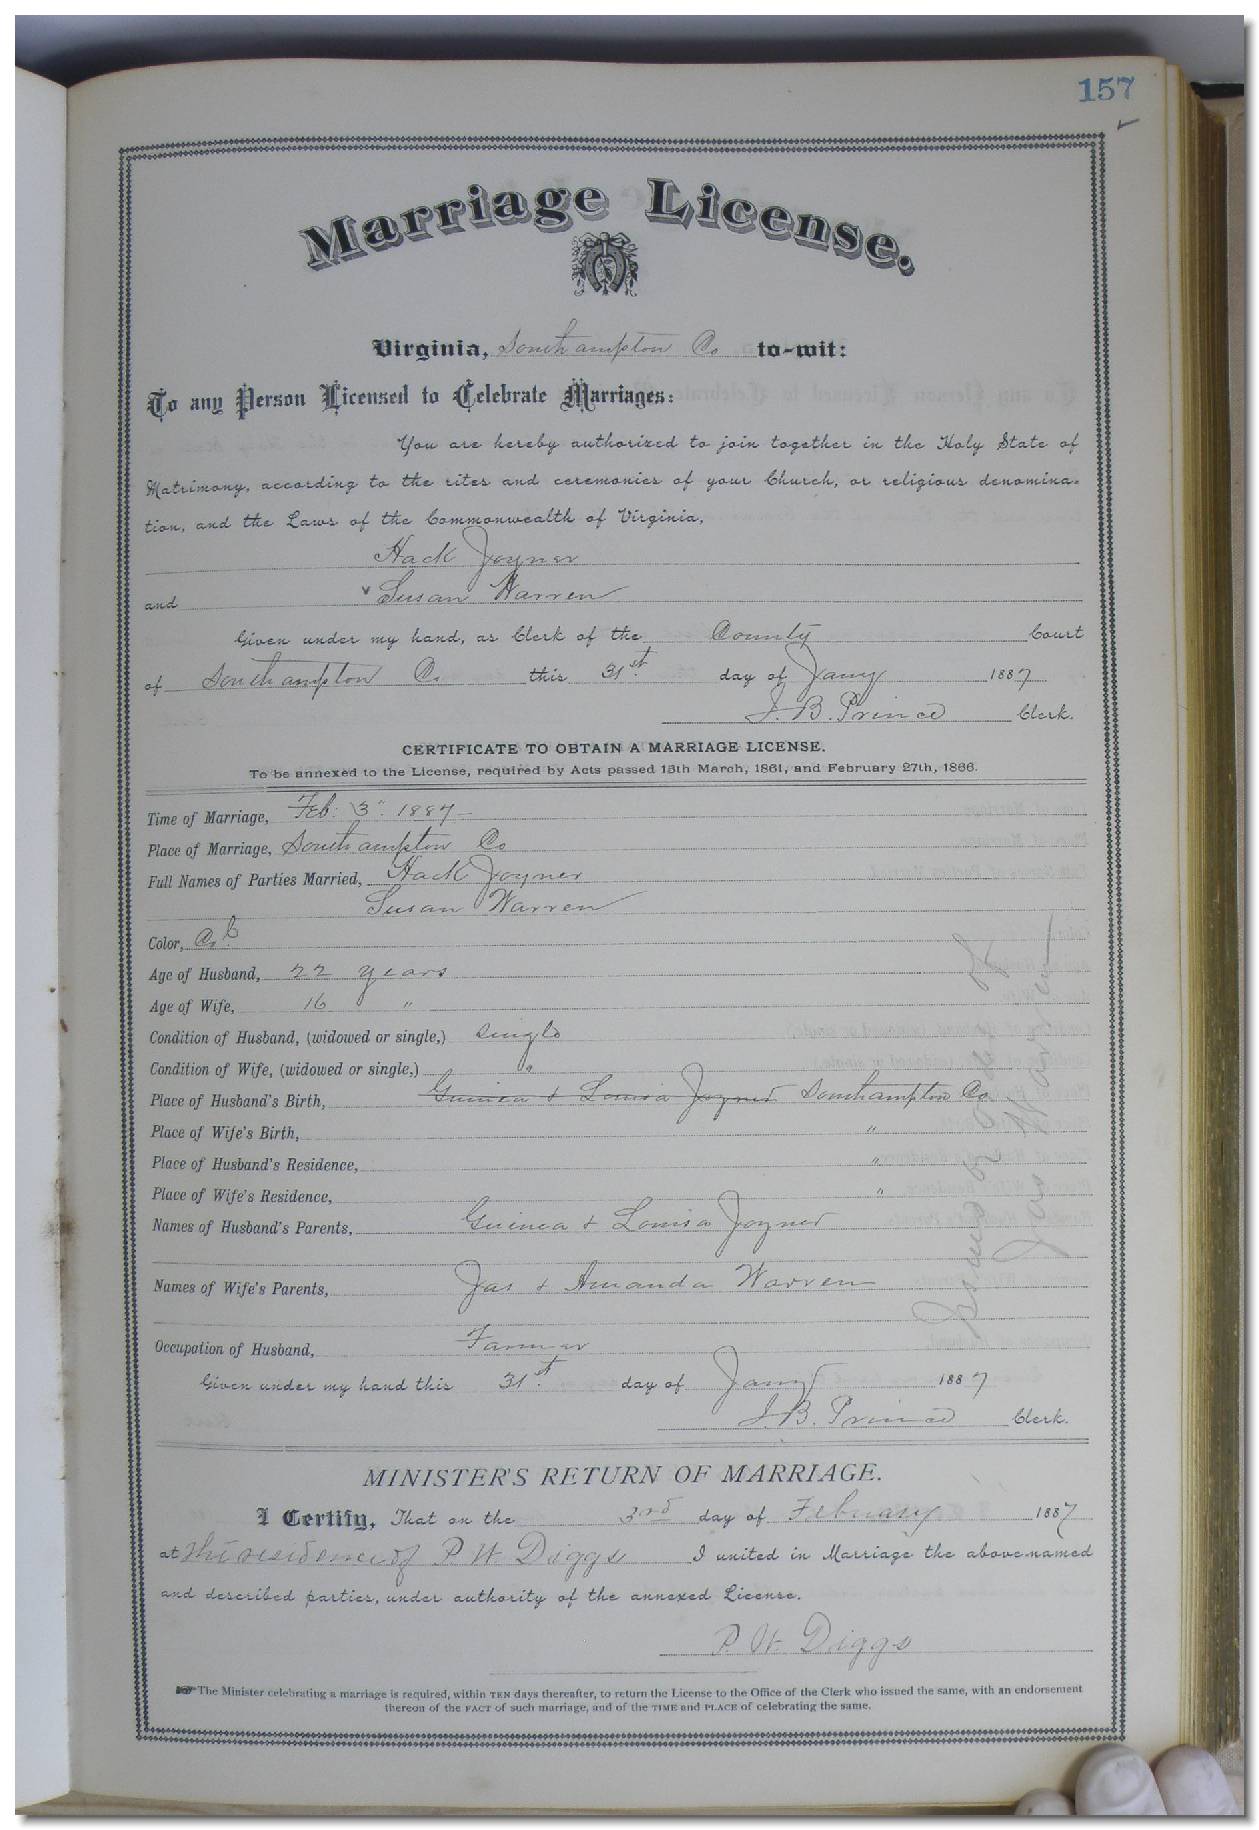 157
Marriage License.
Virginia, Southampton Co to-wit:
To any Person Licensed to Celebrate Marriages:
You are hereby authorized to join together in the Holy State of
Matrimony, according to the rites and ceremonies of your Church, or religious denomina-
tion, and the Laws of the Commonwealth of Virginia,
Hack Joyner
and Susan Warren
Given under my hand, as Clerk of the County Court
of Southampton Co. this 31st day of Jany 1887
J. B. Prince Clerk.
CERTIFICATE TO OBTAIN A MARRIAGE LICENSE.
To be annexed to the License, required by Acts passed 15th March, 1861, and February 27th, 1866.
Time of Marriage, Feb. 3" 1887
Place of Marriage, Southampton Co
Full Names of Parties Married, Hack Joyner
Susan Warren
Color,
Age of Husband, 22 years
Age of Wife, 16 "
Condition of Husband, (widowed or single,) single
Condition of Wife, (widowed or single,) "
Place of Husband's Birth, Guinea & Louisa Joyner Southampton Co
Place of Wife's Birth, "
Place of Husband's Residence, "
Place of Wife's Residence, "
Names of Husband's Parents, Guinea & Louisa Joyner
Names of Wife's Parents, Jas & Amanda Warren
Occupation of Husband, Farmer
Given under my hand this 31st day of Jany 1887
J. B. Prince Clerk.
Issued by order of
Jas Warren
MINISTER'S RETURN OF MARRIAGE.
I Certify, That on the 3rd day of February 1887
at the residence of P. W. Diggs I united in Marriage the above-named
and described parties, under authority of the annexed License.
P. W. Diggs
The Minister celebrating a marriage is required, within TEN days thereafter, to return the License to the Office of the Clerk who issued the same, with an endorsement
thereon of the FACT of such marriage, and of the TIME and PLACE of celebrating the same.